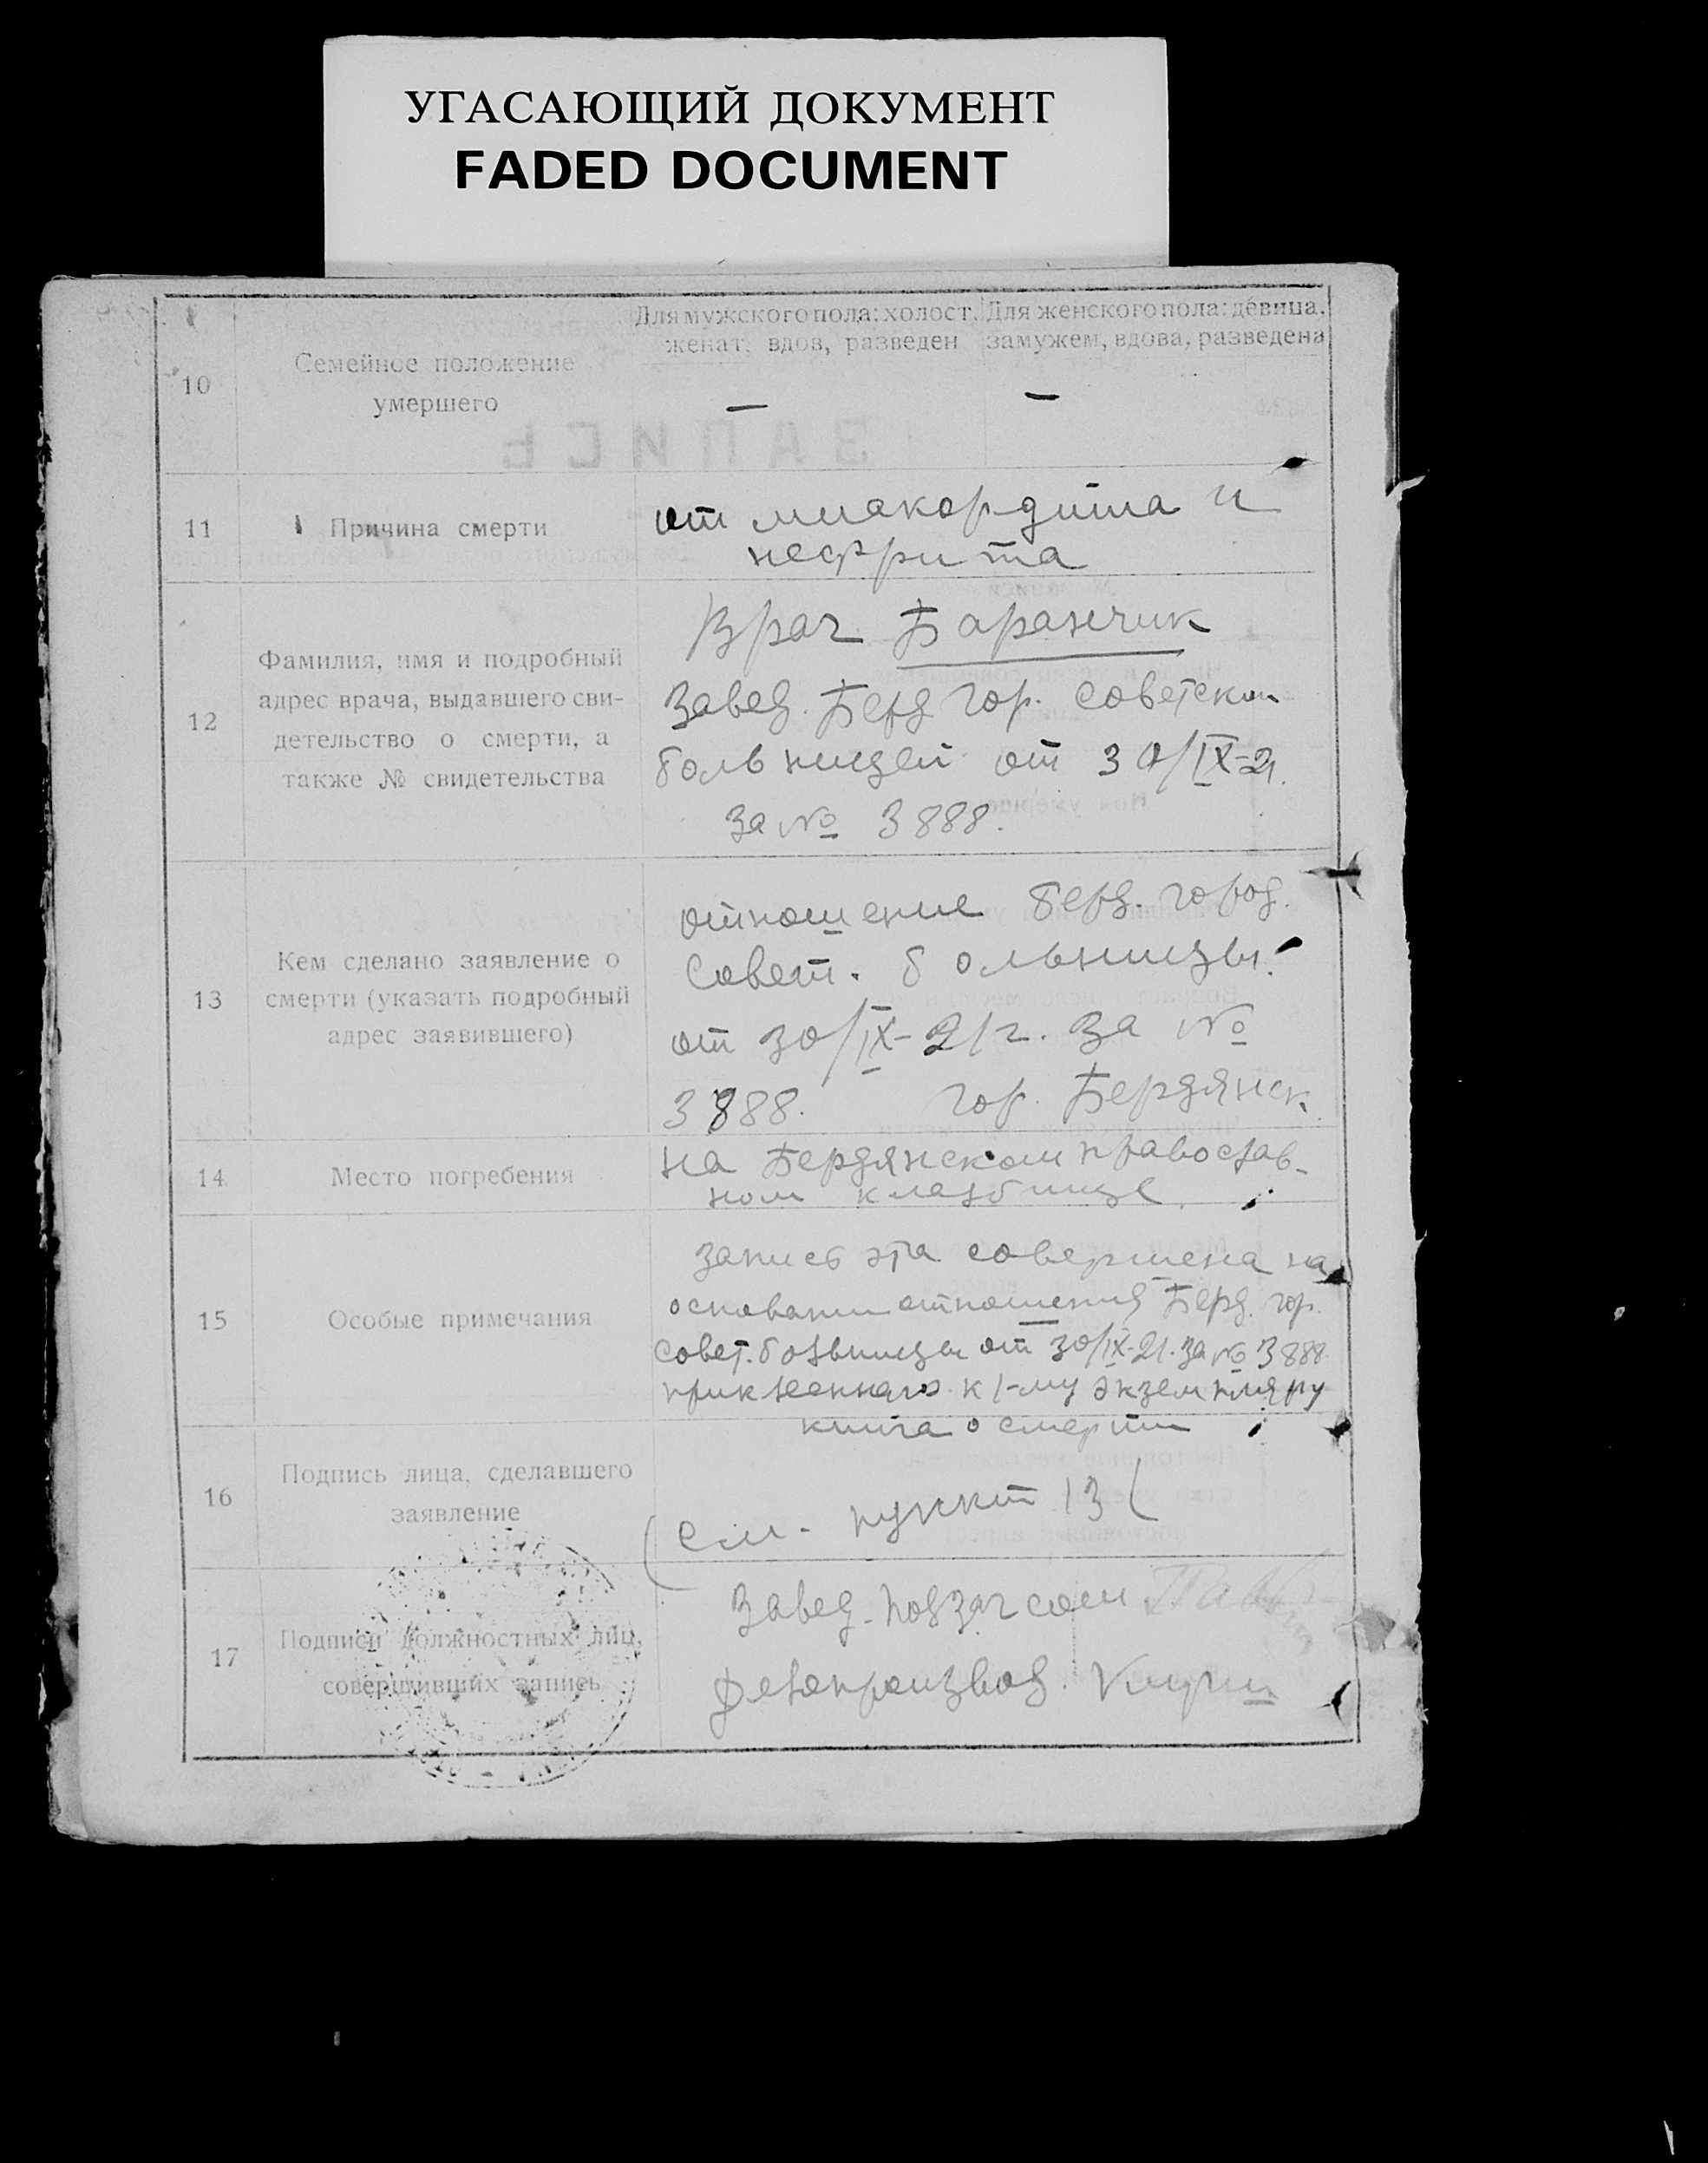 УГАСАЮЩИЙ ДОКУМЕНТ
FADED DOCUMENT
10
Семейное положение
умершего
Для мужского пола: холост,
женат, вдов, разведен
Для женского пола: девица,
замужем, вдова, разведена
—
—
11
Причина смерти
от миакордита и
нефрита
12
Фамилия, имя и подробный
адрес врача, выдавшего сви-
детельство о смерти, а
также № свидетельства
Врач Баранчик
Завед. Берд гор. советской
больницей от 30/IX-21.
за № 3888.
13
Кем сделано заявление о
смерти (указать подробный
адрес заявившего)
отношение берд. город.
Совет. больницы
от 30/IX-21г. за №
3888. гор. Бердянск.
14
Место погребения
на Бердянском православ-
ном кладбище.
15
Особые примечания
запись эта совершена на
основании отношения Берд. гор.
совет. больницы от 30/IX-21. за № 3888.
приклеенного к 1-му экземпляру
книга о смерти
16
Подпись лица, сделавшего
заявление
(см. пункт 13(
17
Подписи должностных лиц,
совершивших запись
Завед. подзагсом
Делопроизвод.